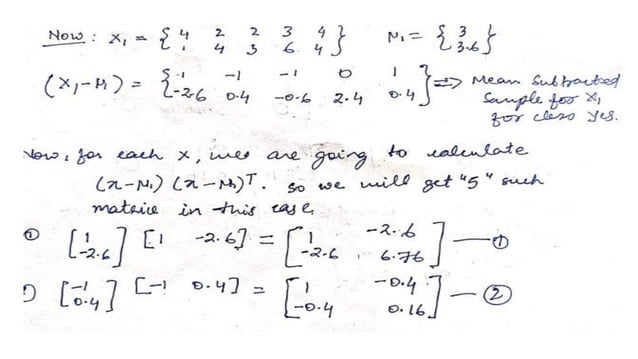 Now : X₁ = { 4 2 2 3 4 } μ₁ = { 3 }
{ 1 4 3 6 4 } { 3.6 }
(X₁-μ₁) = { 1 -1 -1 0 1 } => Mean Subtracted
{ -2.6 0.4 -0.6 2.4 0.4 } Sample for X₁
for class Yes.
Now, for each x, we are going to calculate
(x-μ₁) (x-μ₁)ᵀ. so we will get "5" such
matrice in this case.
① [ 1 ] [1 -2.6] = [ 1 -2.6 ] — ①
[ -2.6 ] [ -2.6 6.76 ]
[ -1 ] [-1 0.4] = [ 1 -0.4 ] — ②
[ 0.4 ] [ -0.4 0.16 ]